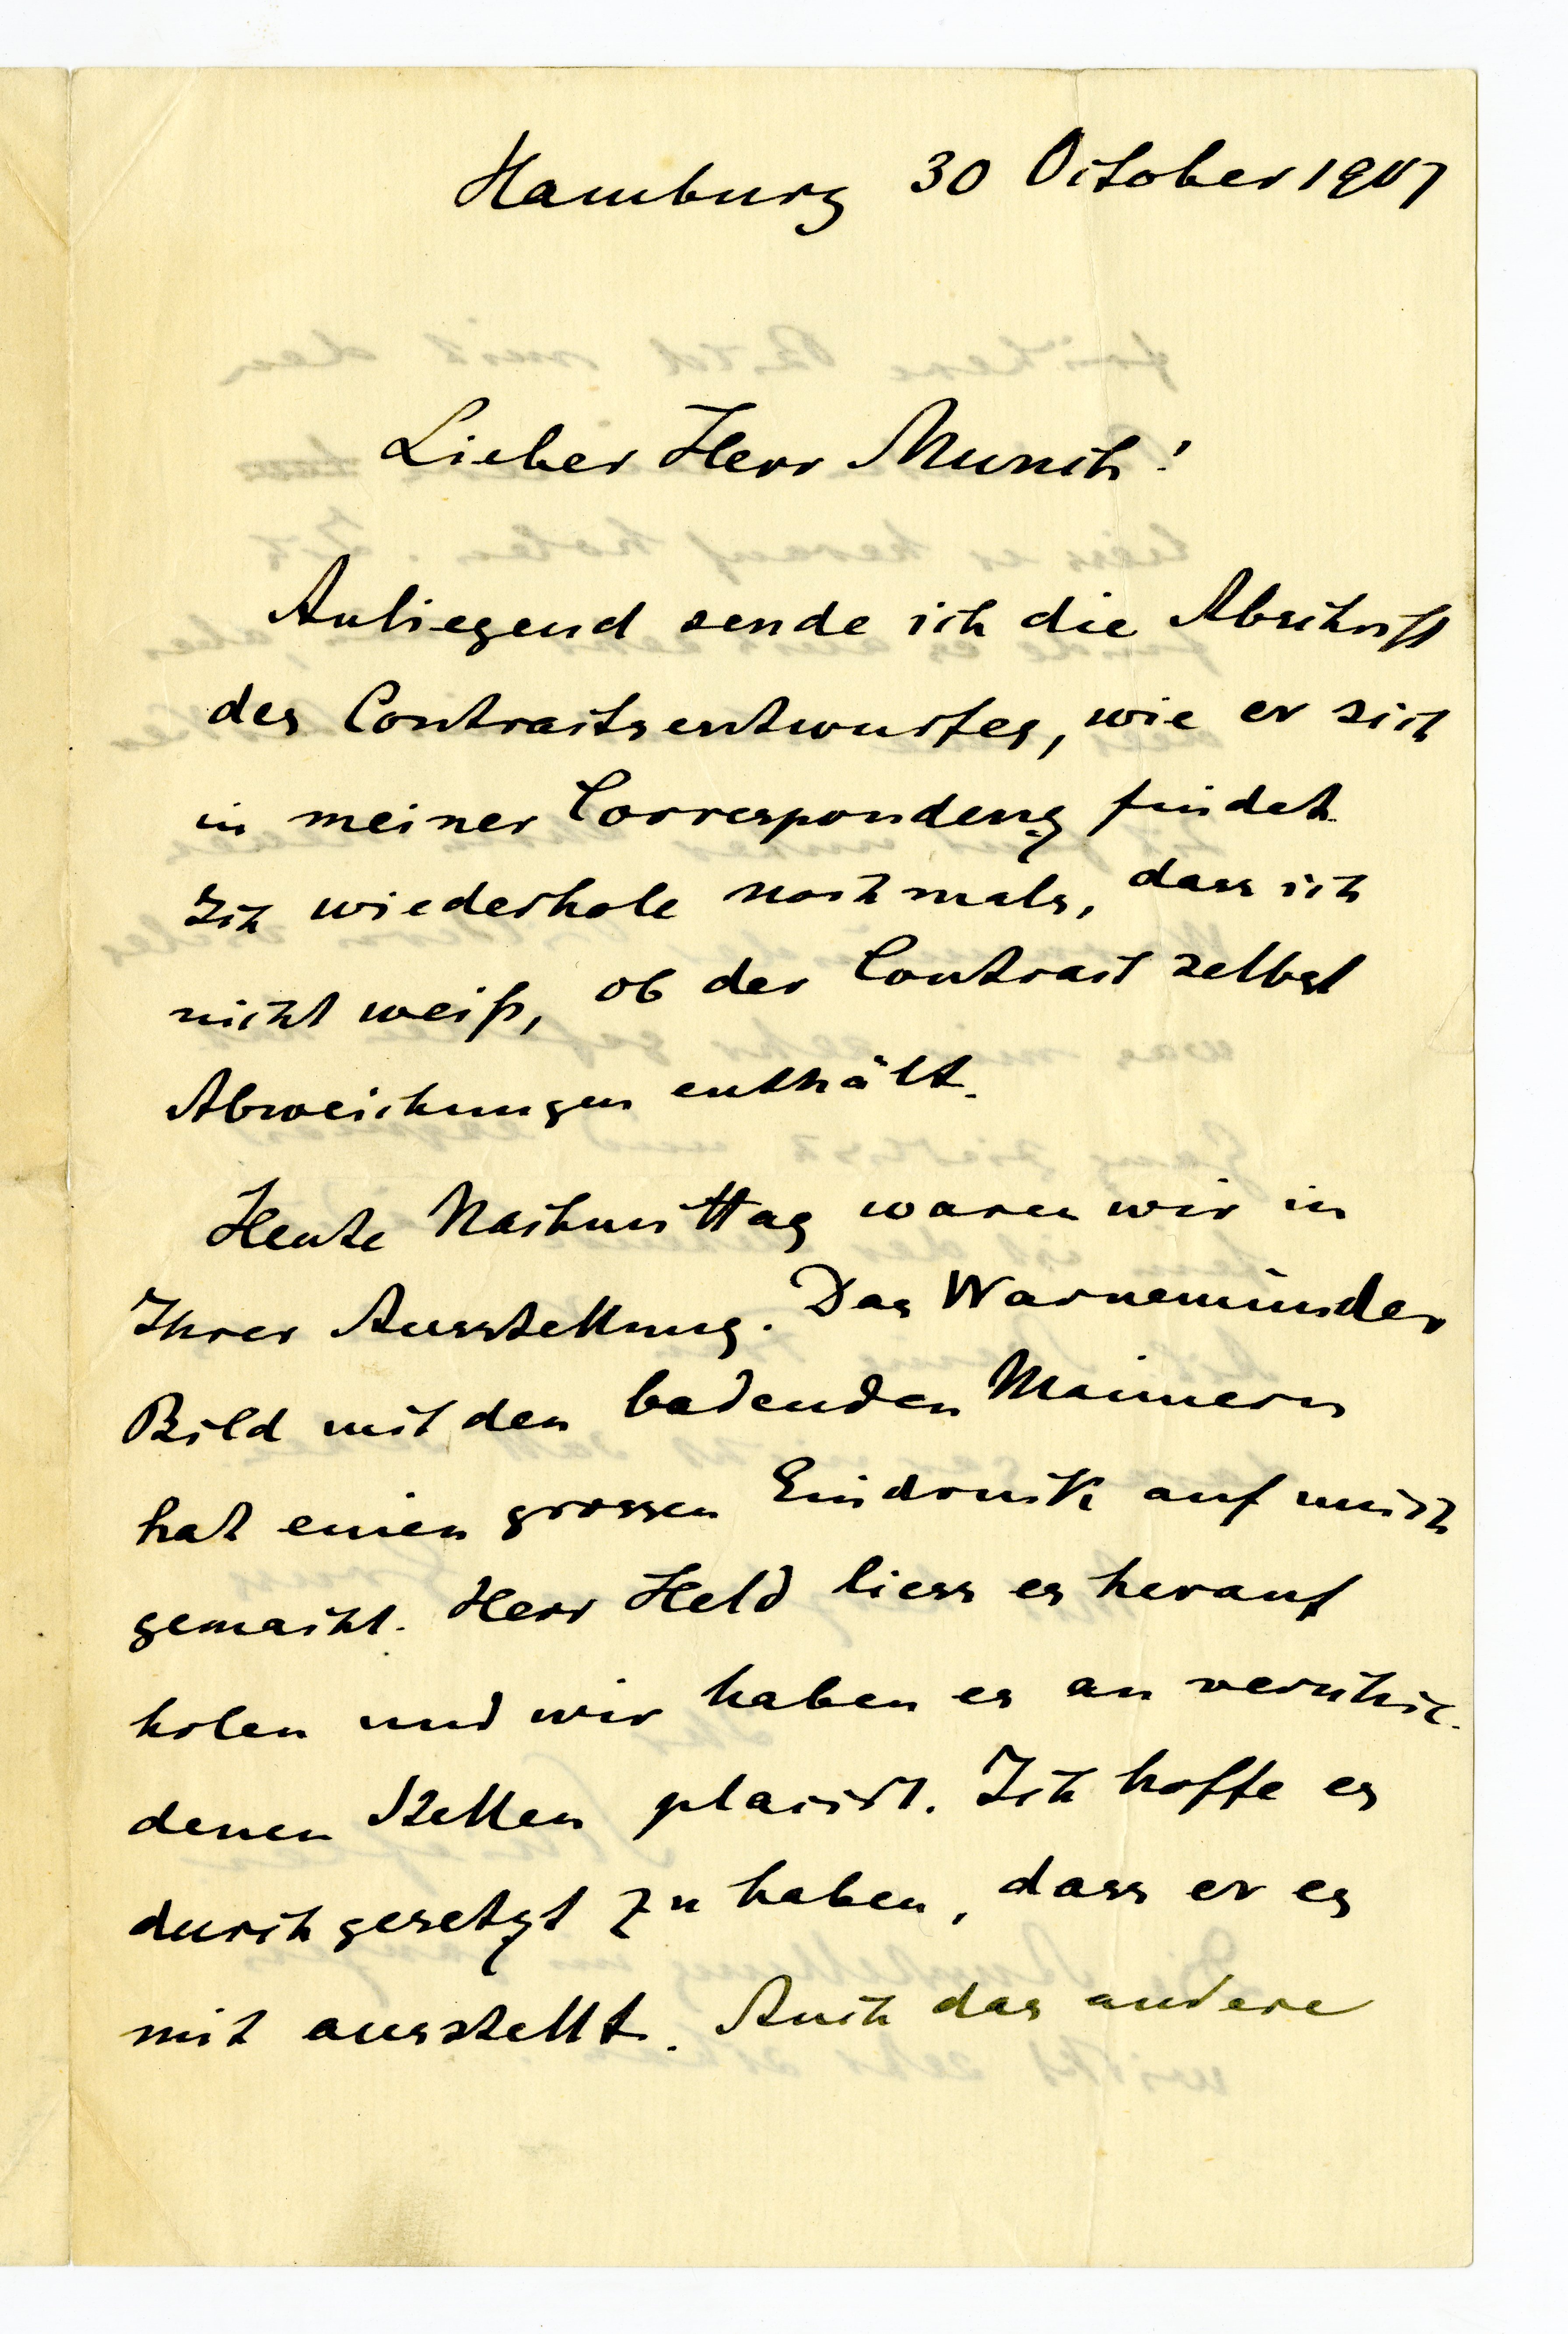 Hamburg 30 October 1907
Lieber Herr Munch!
Anliegend sende ich die Abschrift
des Contractsentwurfes, wie er sich
in meiner Correspondenz findet.
Ich wiederhole nochmals, dass ich
nicht weiß, ob der Contract selbst
Abweichungen enthält.
Heute Nachmittag waren wir in
Ihrer Ausstellung. Das Warnemünder
Bild mit den badenden Männern
hat einen grossen Eindruck auf mich
gemacht. Herr Held liess es herauf
holen und wir haben es an verschie-
denen Stellen placirt. Ich hoffe es
durchgesetzt zu haben, dass er es
mit ausstellt. Auch das andere